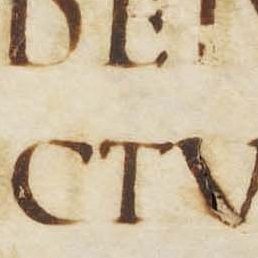 DE
CTV